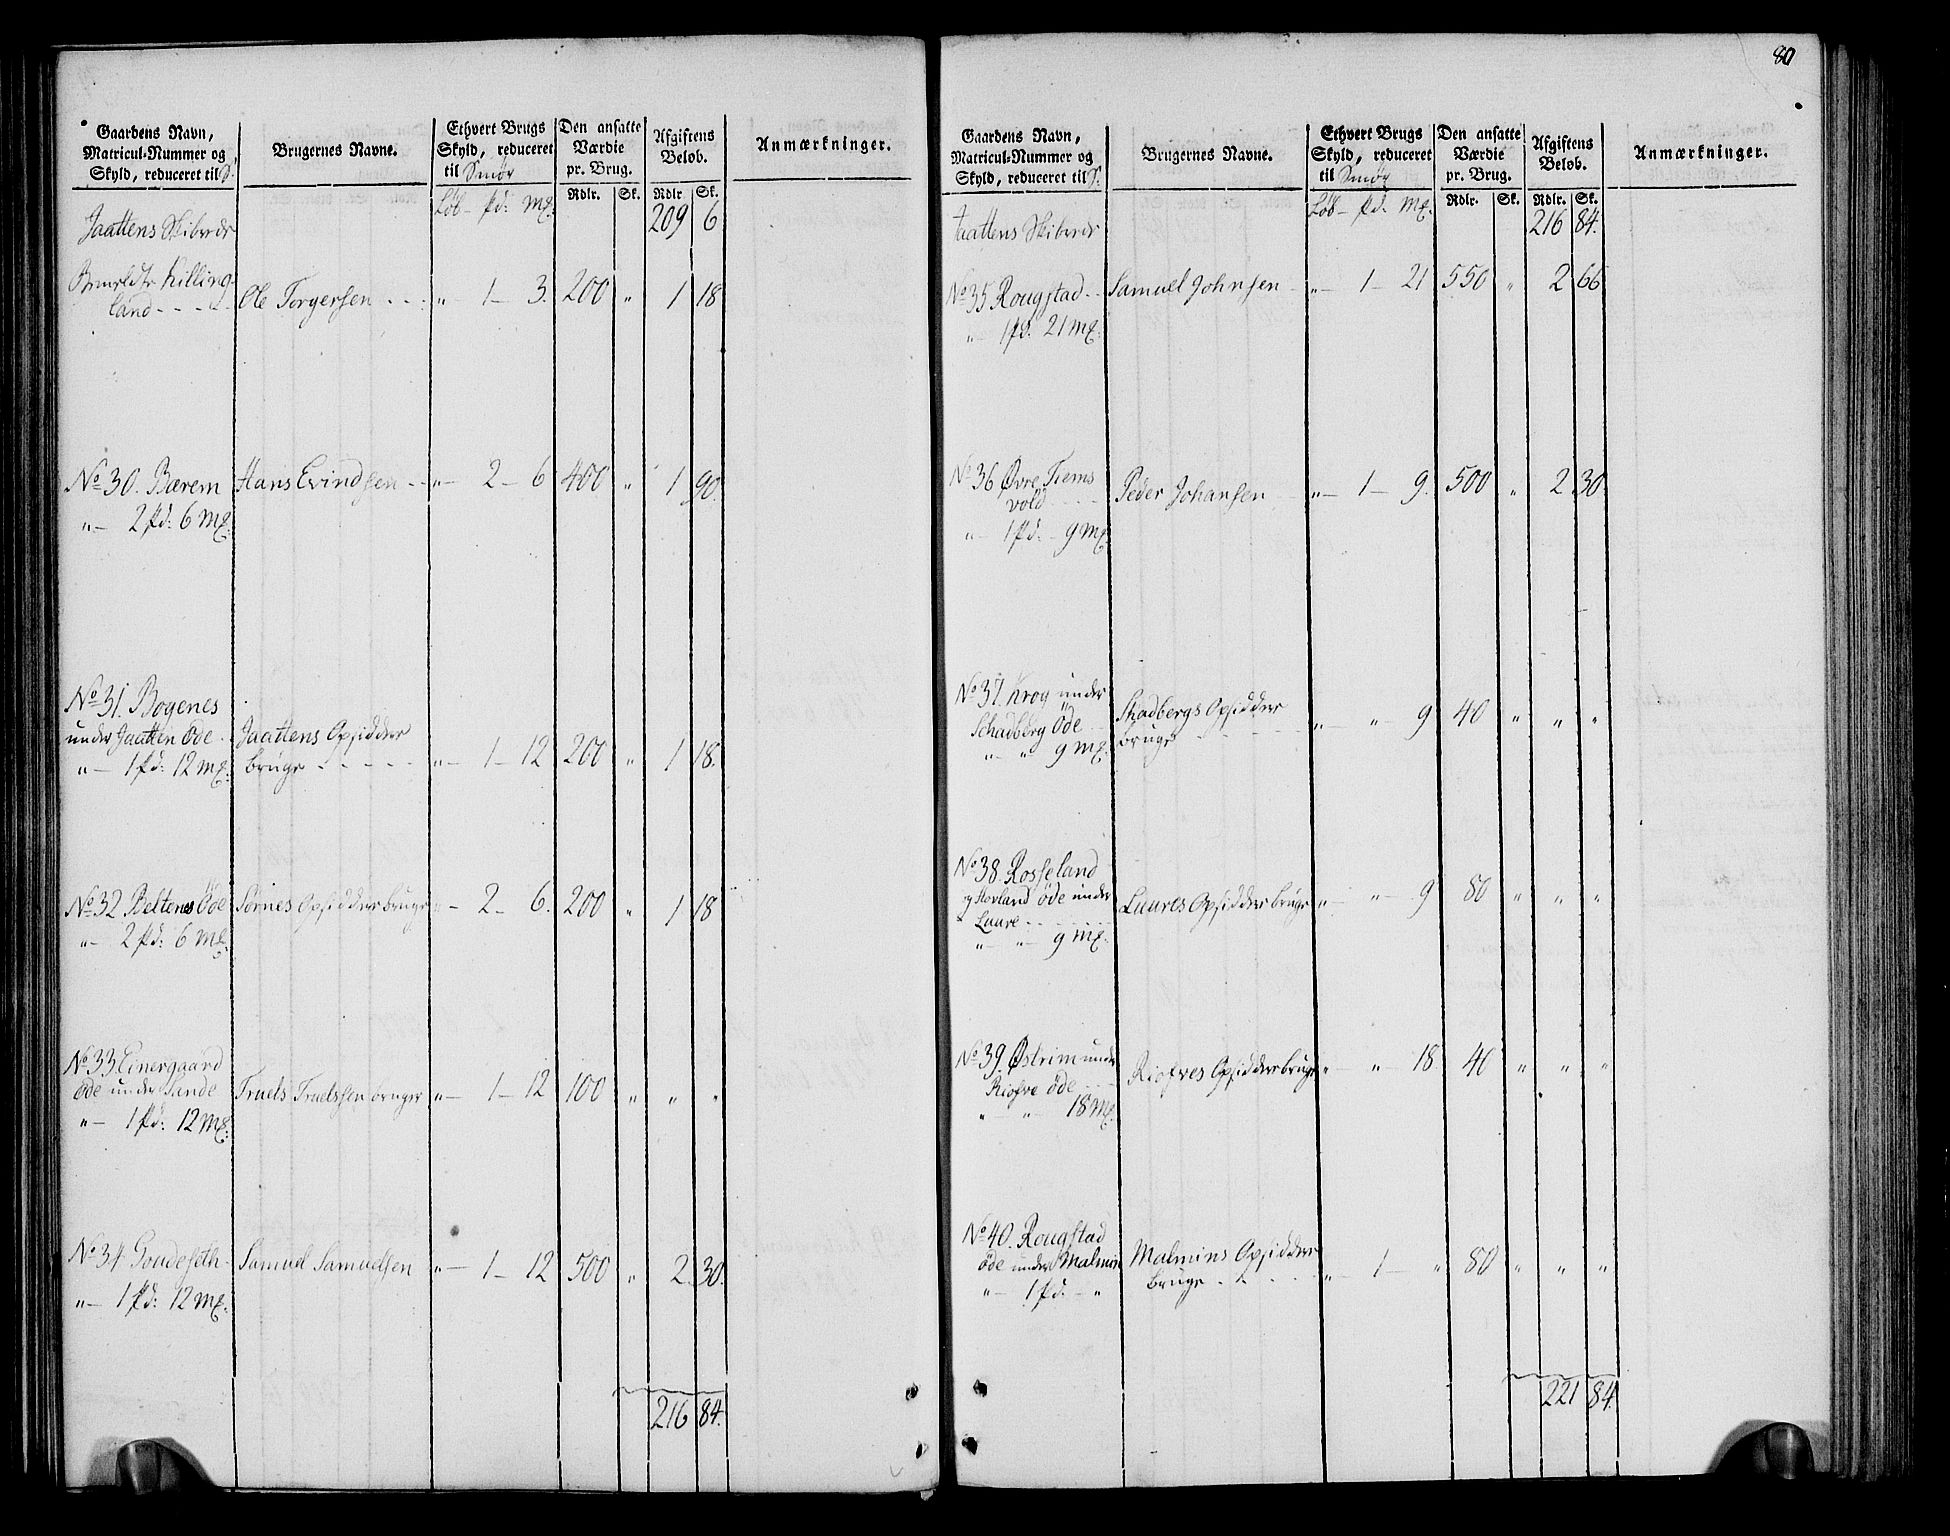 Gaardens Navn,
Matricul-Nummer og
Skyld, reduceret til S.
Brugernes Navne.
Ethvert Brugs
Skyld, reduceret
til Smør
Den ansatte
Værdie
pr. Brug.
Afgiftens
Beløb.
Anmærkninger.
Rdlr. Sk. Rdlr Sk.
Jaattens Skibrede Løb - pd: mk. 209 6
Killing-
land - - - - Ole Torgersen - - - " 1 - 3. 200 " 1 18
No 30. Bærem Hans Evindsen - - " - 2 - 6 400 " 1 90.
" - 2 pd: 6 mk.
No 31. Bogenes
under Jaatten øde - Jaattens Opsidder
" - 1 pd: 12 mk. bruge - - - - - " - 1 - 12 200 " 1 18.
No 32 Beltenes Øde Sørnes Opsidder bruge " - 2 - 6. 200 " 1 18
" - 2 pd: 6 mk.
No 33. Einergaard
øde under Sande Truels Truelssen bruger " - 1 - 12 100 " " "
" - 1 pd: 12 mk.
No 34 Goudeseth - Samuel Samuelsen " - 1 - 12 500 " 2. 30.
" - 1 pd: 12 mk.
216 84.
80
Gaardens Navn,
Matricul-Nummer og
Skyld, reduceret til S.
Brugernes Navne.
Ethvert Brugs
Skyld, reduceret
til Smør
Den ansatte
Værdie
pr. Brug.
Afgiftens
Beløb.
Anmærkninger.
Rdlr. Sk. Rdlr. Sk.
Jaattens Skibrede Løb - pd. mk. 216 84.
No 35 Rougstad - - Samuel Johnsen - " - 1 - 21 550 " 2 66
" - 1 pd. 21 mk.
No 36 Øvre Tiems
vold - - - Peder Johansen - " - 1 - 9. 500 " 2 30.
" - 1 pd: - 9 mk.
No 37. Krog under
Schadberg Øde - - Skadbergs Opsidder
" - " 9 mk. bruge - - - - - " - " 9 40 " " "
No 38. Rosseland
og Hovland øde under
Laure - - - - Laures Opsidder bruge " - " - 9 80 " " "
" - " - 9 mk.
No 39. Østrim under
Riosre øde - - - Riosres Opsidder bruge " " 18 40 " " "
" " 18 mk.
No 40. Rougstad
øde under Malmin Malmins Opsidder
" - 1 pd: - " bruge - - - - - " - 1 - " 80 " " "
221 84.